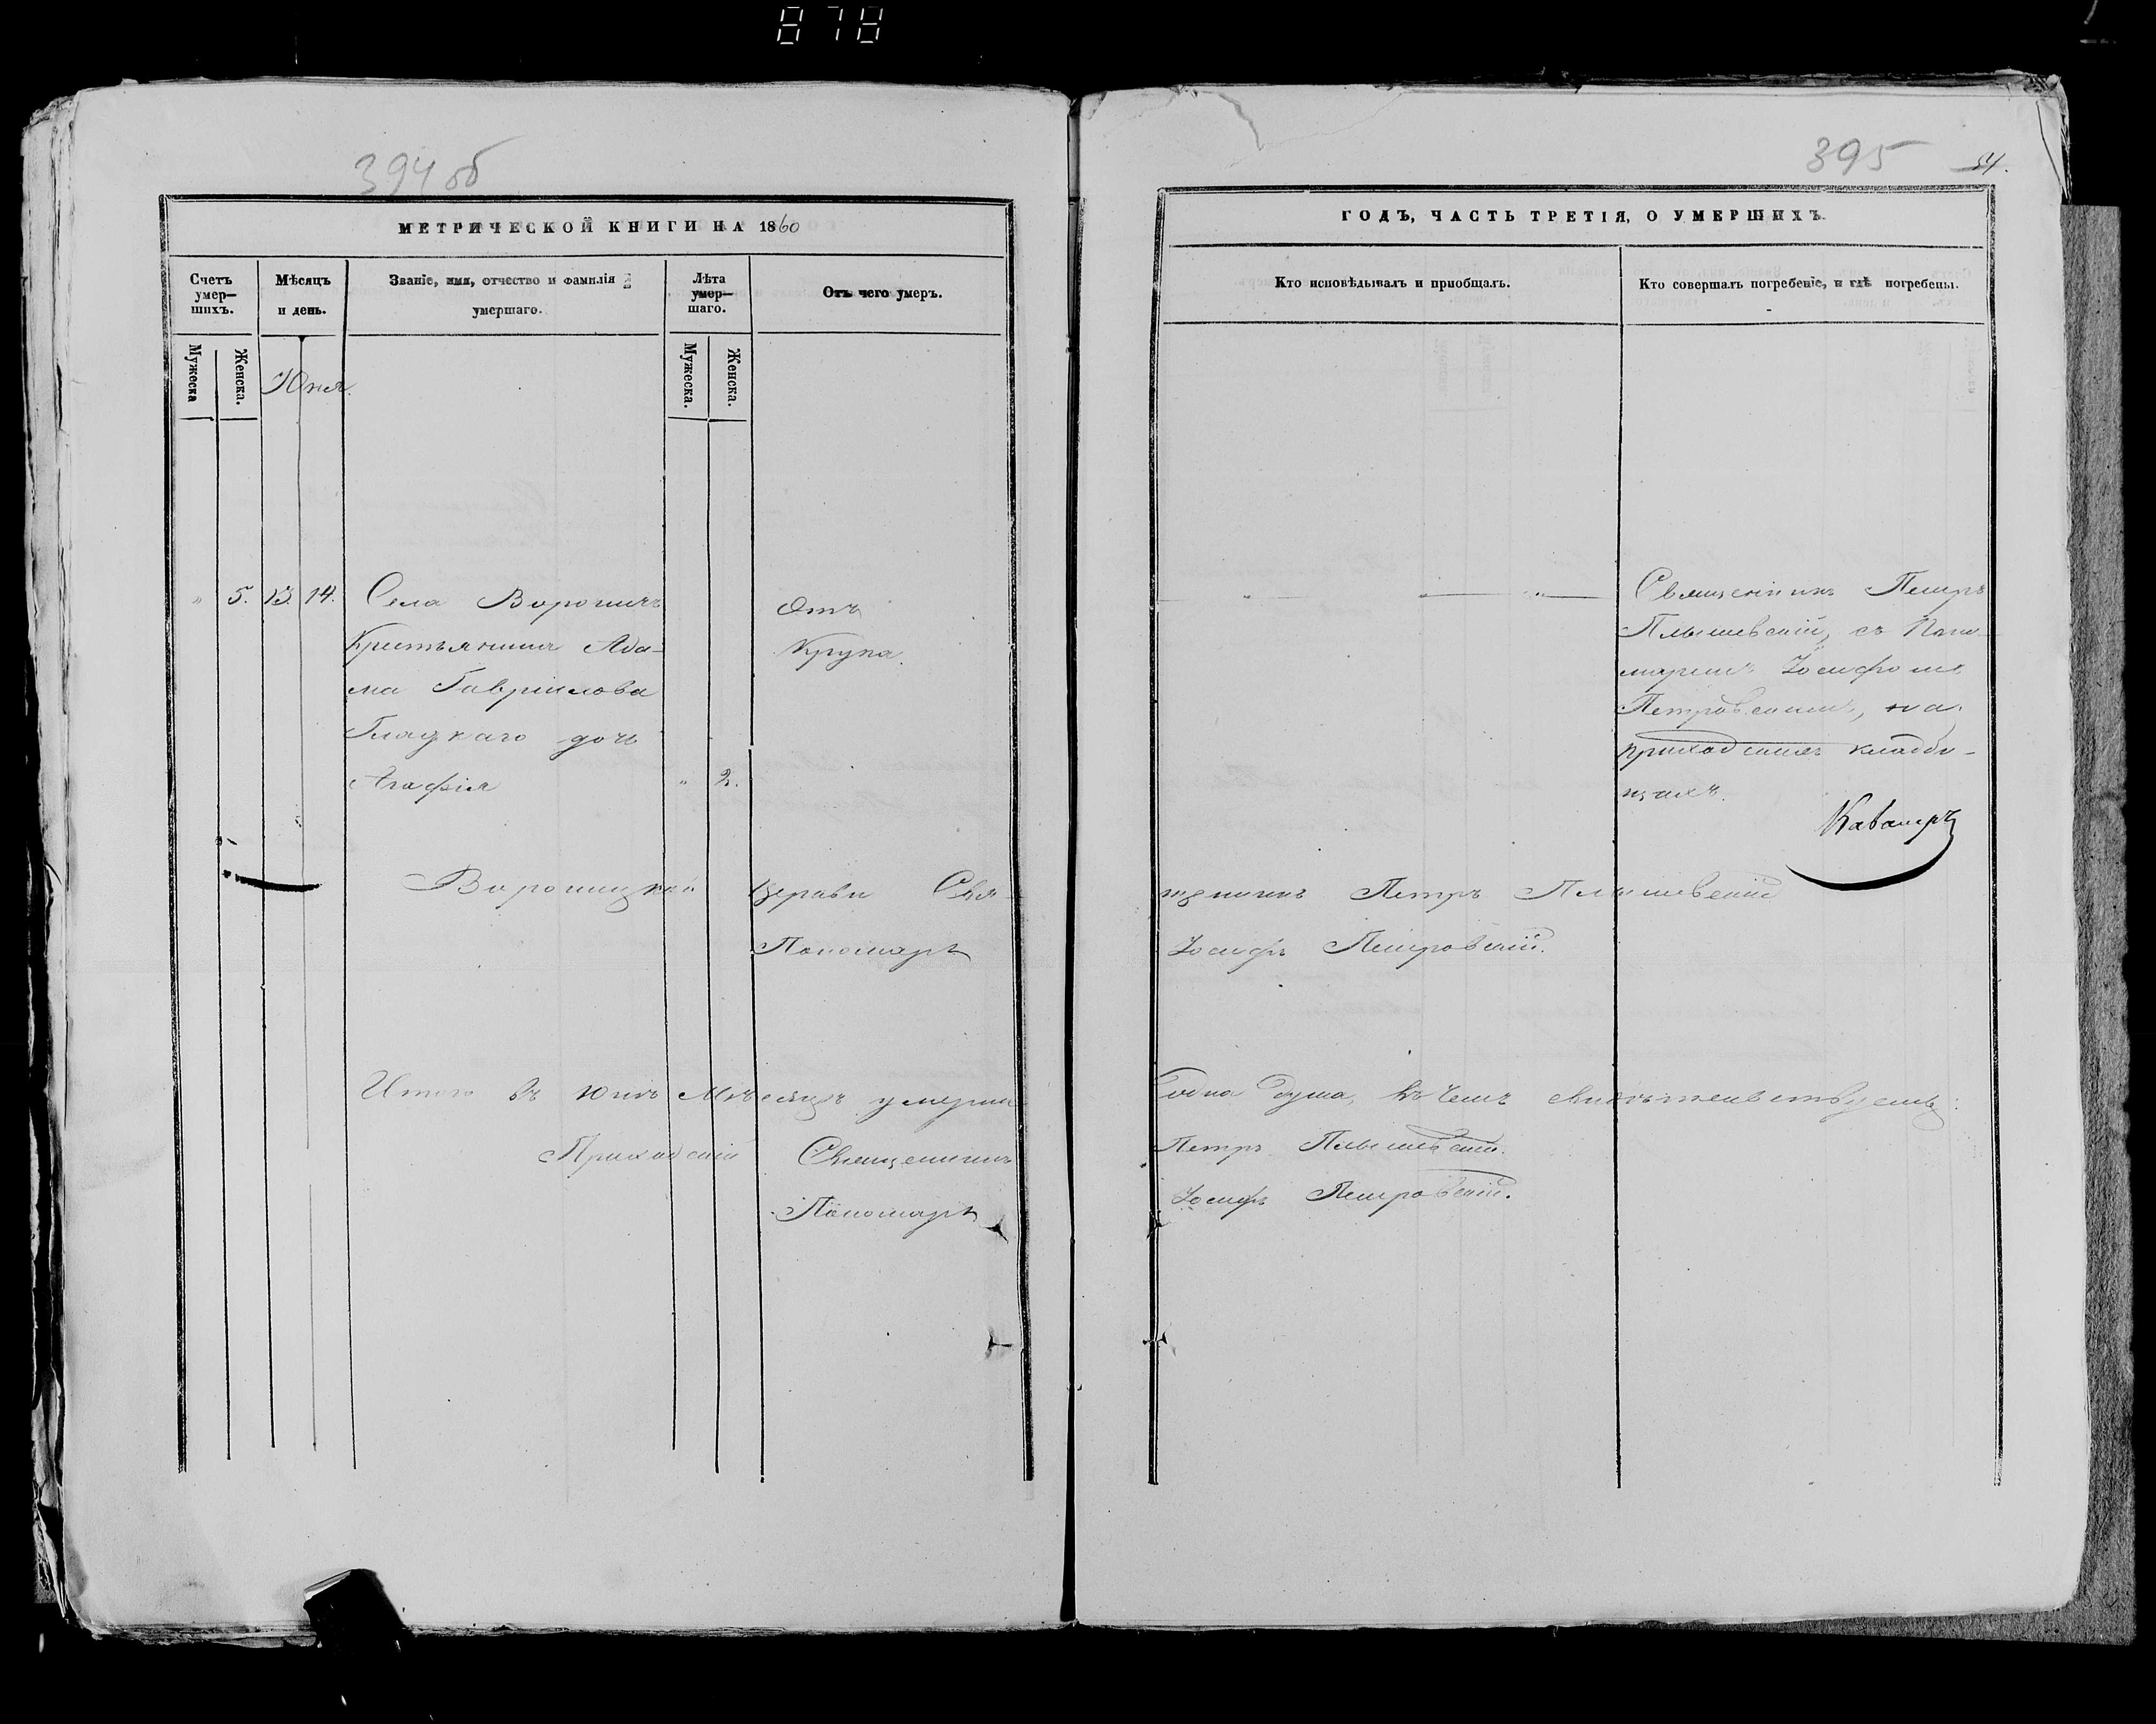 878
394 об
395
54.
МЕТРИЧЕСКОЙ КНИГИ НА 1860
ГОДЪ, ЧАСТЬ ТРЕТІЯ, О УМЕРШИХЪ.
Счетъ умер— шихъ.
Мужеска
Женска.
Мѣсяцъ и день.
Званіе, имя, отчество и фамилія умершаго.
Лѣта умер— шаго.
Мужеска.
Женска.
Отъ чего умеръ.
Кто исповѣдывалъ и пріобщалъ.
Кто совершалъ погребеніе, и гдѣ погребены.
Юня.
" 5. 13. 14. Села Вороничъ
Крестьянина Ада-
ма Гавріилова
Гладкаго дочь
Агафія " 2.
Отъ
Крупа.
" — "
Священникъ Петръ
съ Поно-
маремъ Іосифомъ
Петровскимъ, на
приходскихъ кладби-
щахъ.
Каваперъ
Церкви Свя-
щенникъ Петръ
Пономарь Іосифъ Петровскій.
Итого въ Юнѣ Мѣсяцѣ умерла одна душа, въ чемъ свидѣтельствуемъ:
Приходскій Священникъ Петръ
Пономарь Іосифъ Петровскій.